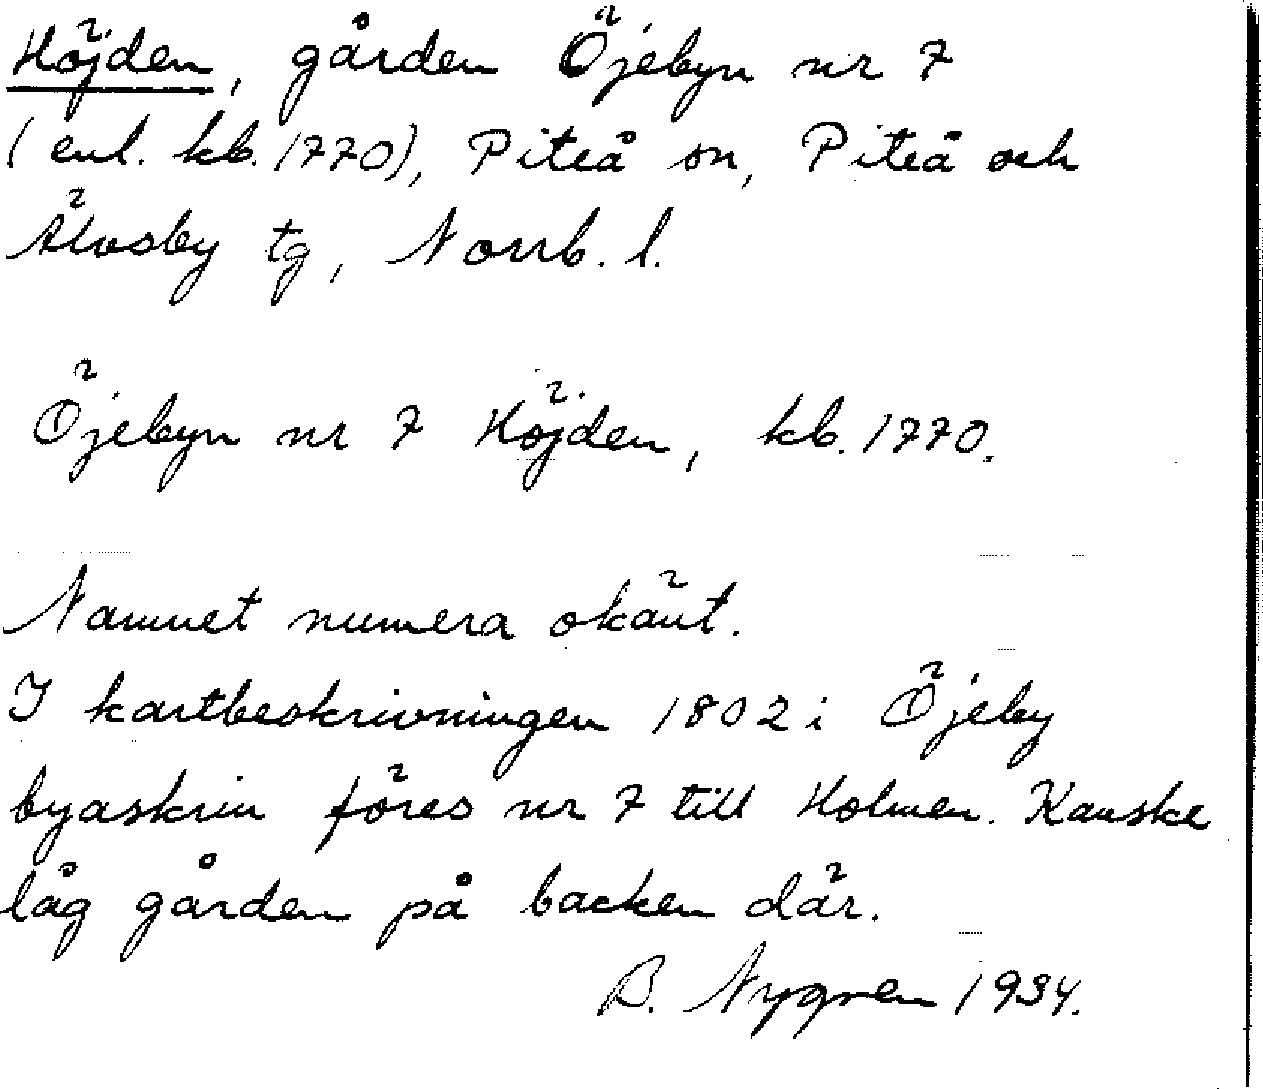 Höjden, gården Öjebyn nr 7
(enl. kb. 1770), Piteå sn, Piteå och
Älvsby tg, Norrb. l.
Öjebyn nr 7 Höjden, kb. 1770.
Namnet numera okänt.
I kartbeskrivningen 1802 i Öjeby
byaskrin föres nr 7 till Holmen. Kanske
låg gården på backen där.
B. Nygren 1934.